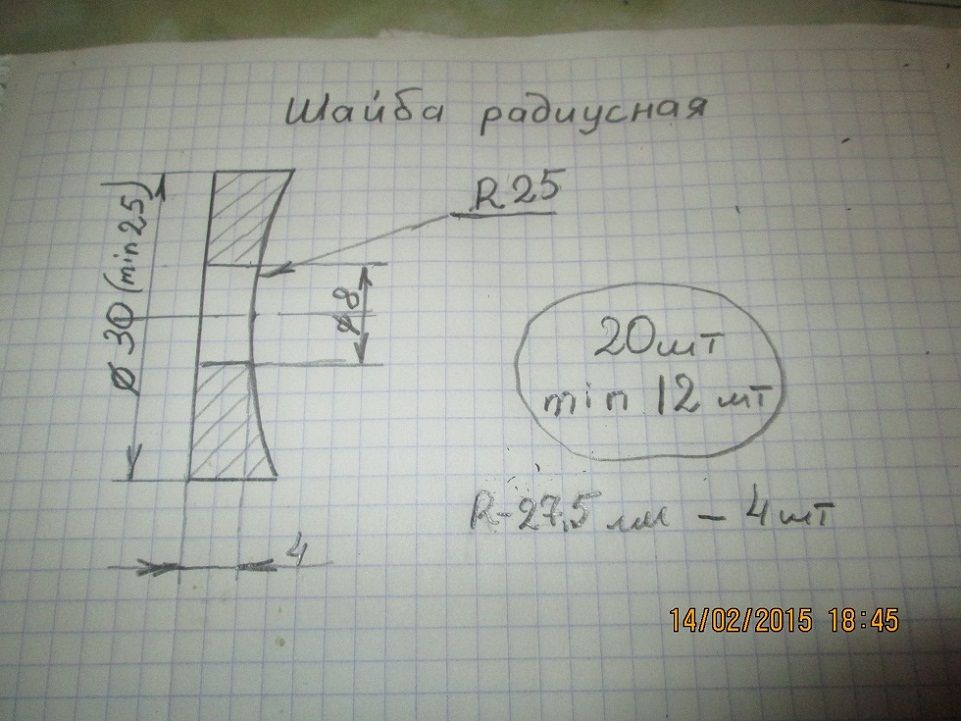 Шайба радиусная
R 25
Ø 30 (min 25)
Ø 8
20 шт
min 12 шт
R-27,5 мм – 4 шт
4
14/02/2015 18:45